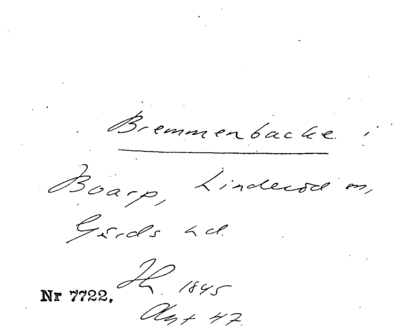 Bremmenbacke i
Boarp, Linderöd sn,
Gärds hd.
Nr 7722.
1845
Akt 47